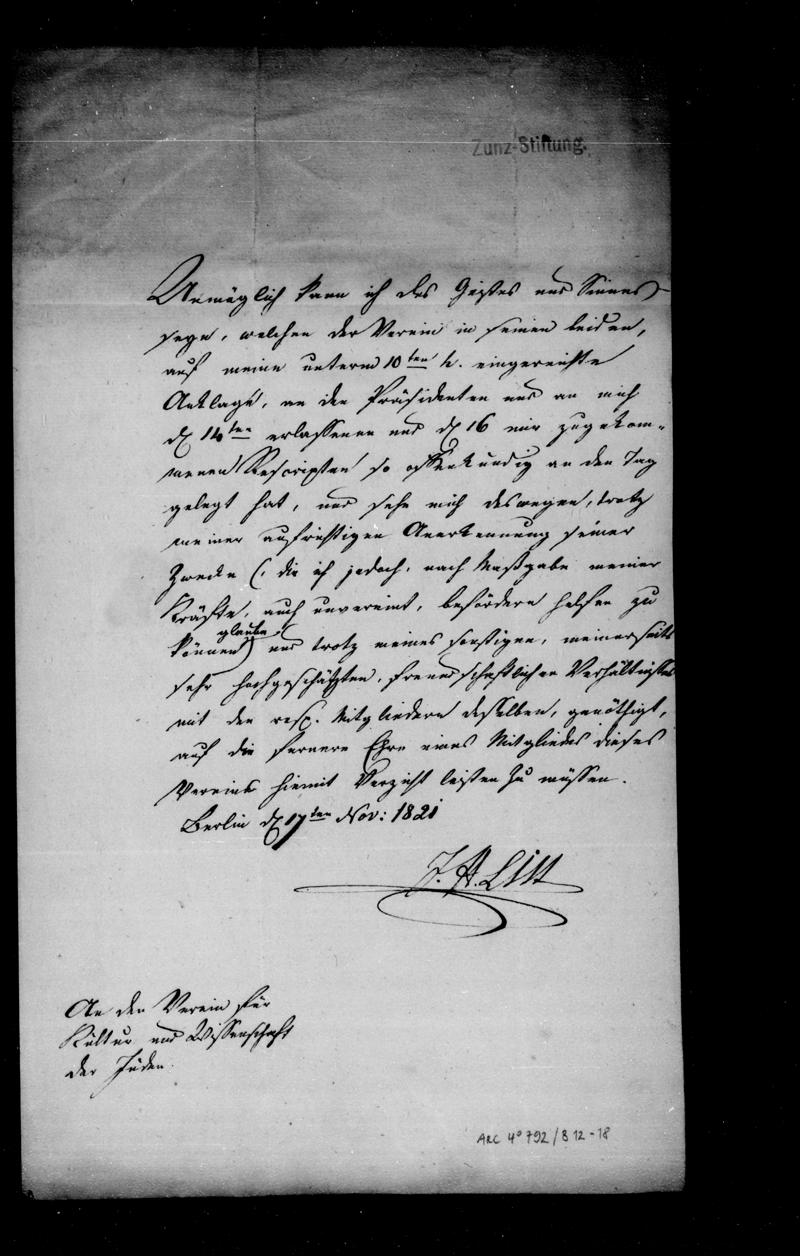 Zunz-Stiftung.
Unmöglich kann ich des Geistes und Sinnes
seyn, welchen der Verein in seinen beiden,
auf meine unterm 10ten h. eingereichte
Anklage, an den Präsidenten und an mich
d 14ten erlassenen und d 16 mir zugekom-
menen Rescripten so offenkundig an den Tag
gelegt hat, und sehe mich deswegen, trotz
meiner aufrichtigen Anerkennung seiner
Zwecke (, die ich jedoch, nach Maßgabe meiner
Kräfte, auch unvereint, befördern helfen zu
können glaube,) und trotz meines sonstigen, meinerseits
sehr hochgeschätzten, freundschaftlichen Verhältnisses
mit den resp. Mitgliedern desselben, genöthigt,
auf die fernere Ehre eines Mitgliedes dieses
Vereins hiemit Verzicht leisten zu müssen.
Berlin d 17ten Nov: 1821
J. A. List
An den Verein für
Kultur und Wissenschaft
der Juden.
ARC 4° 792 / B 12 - 18